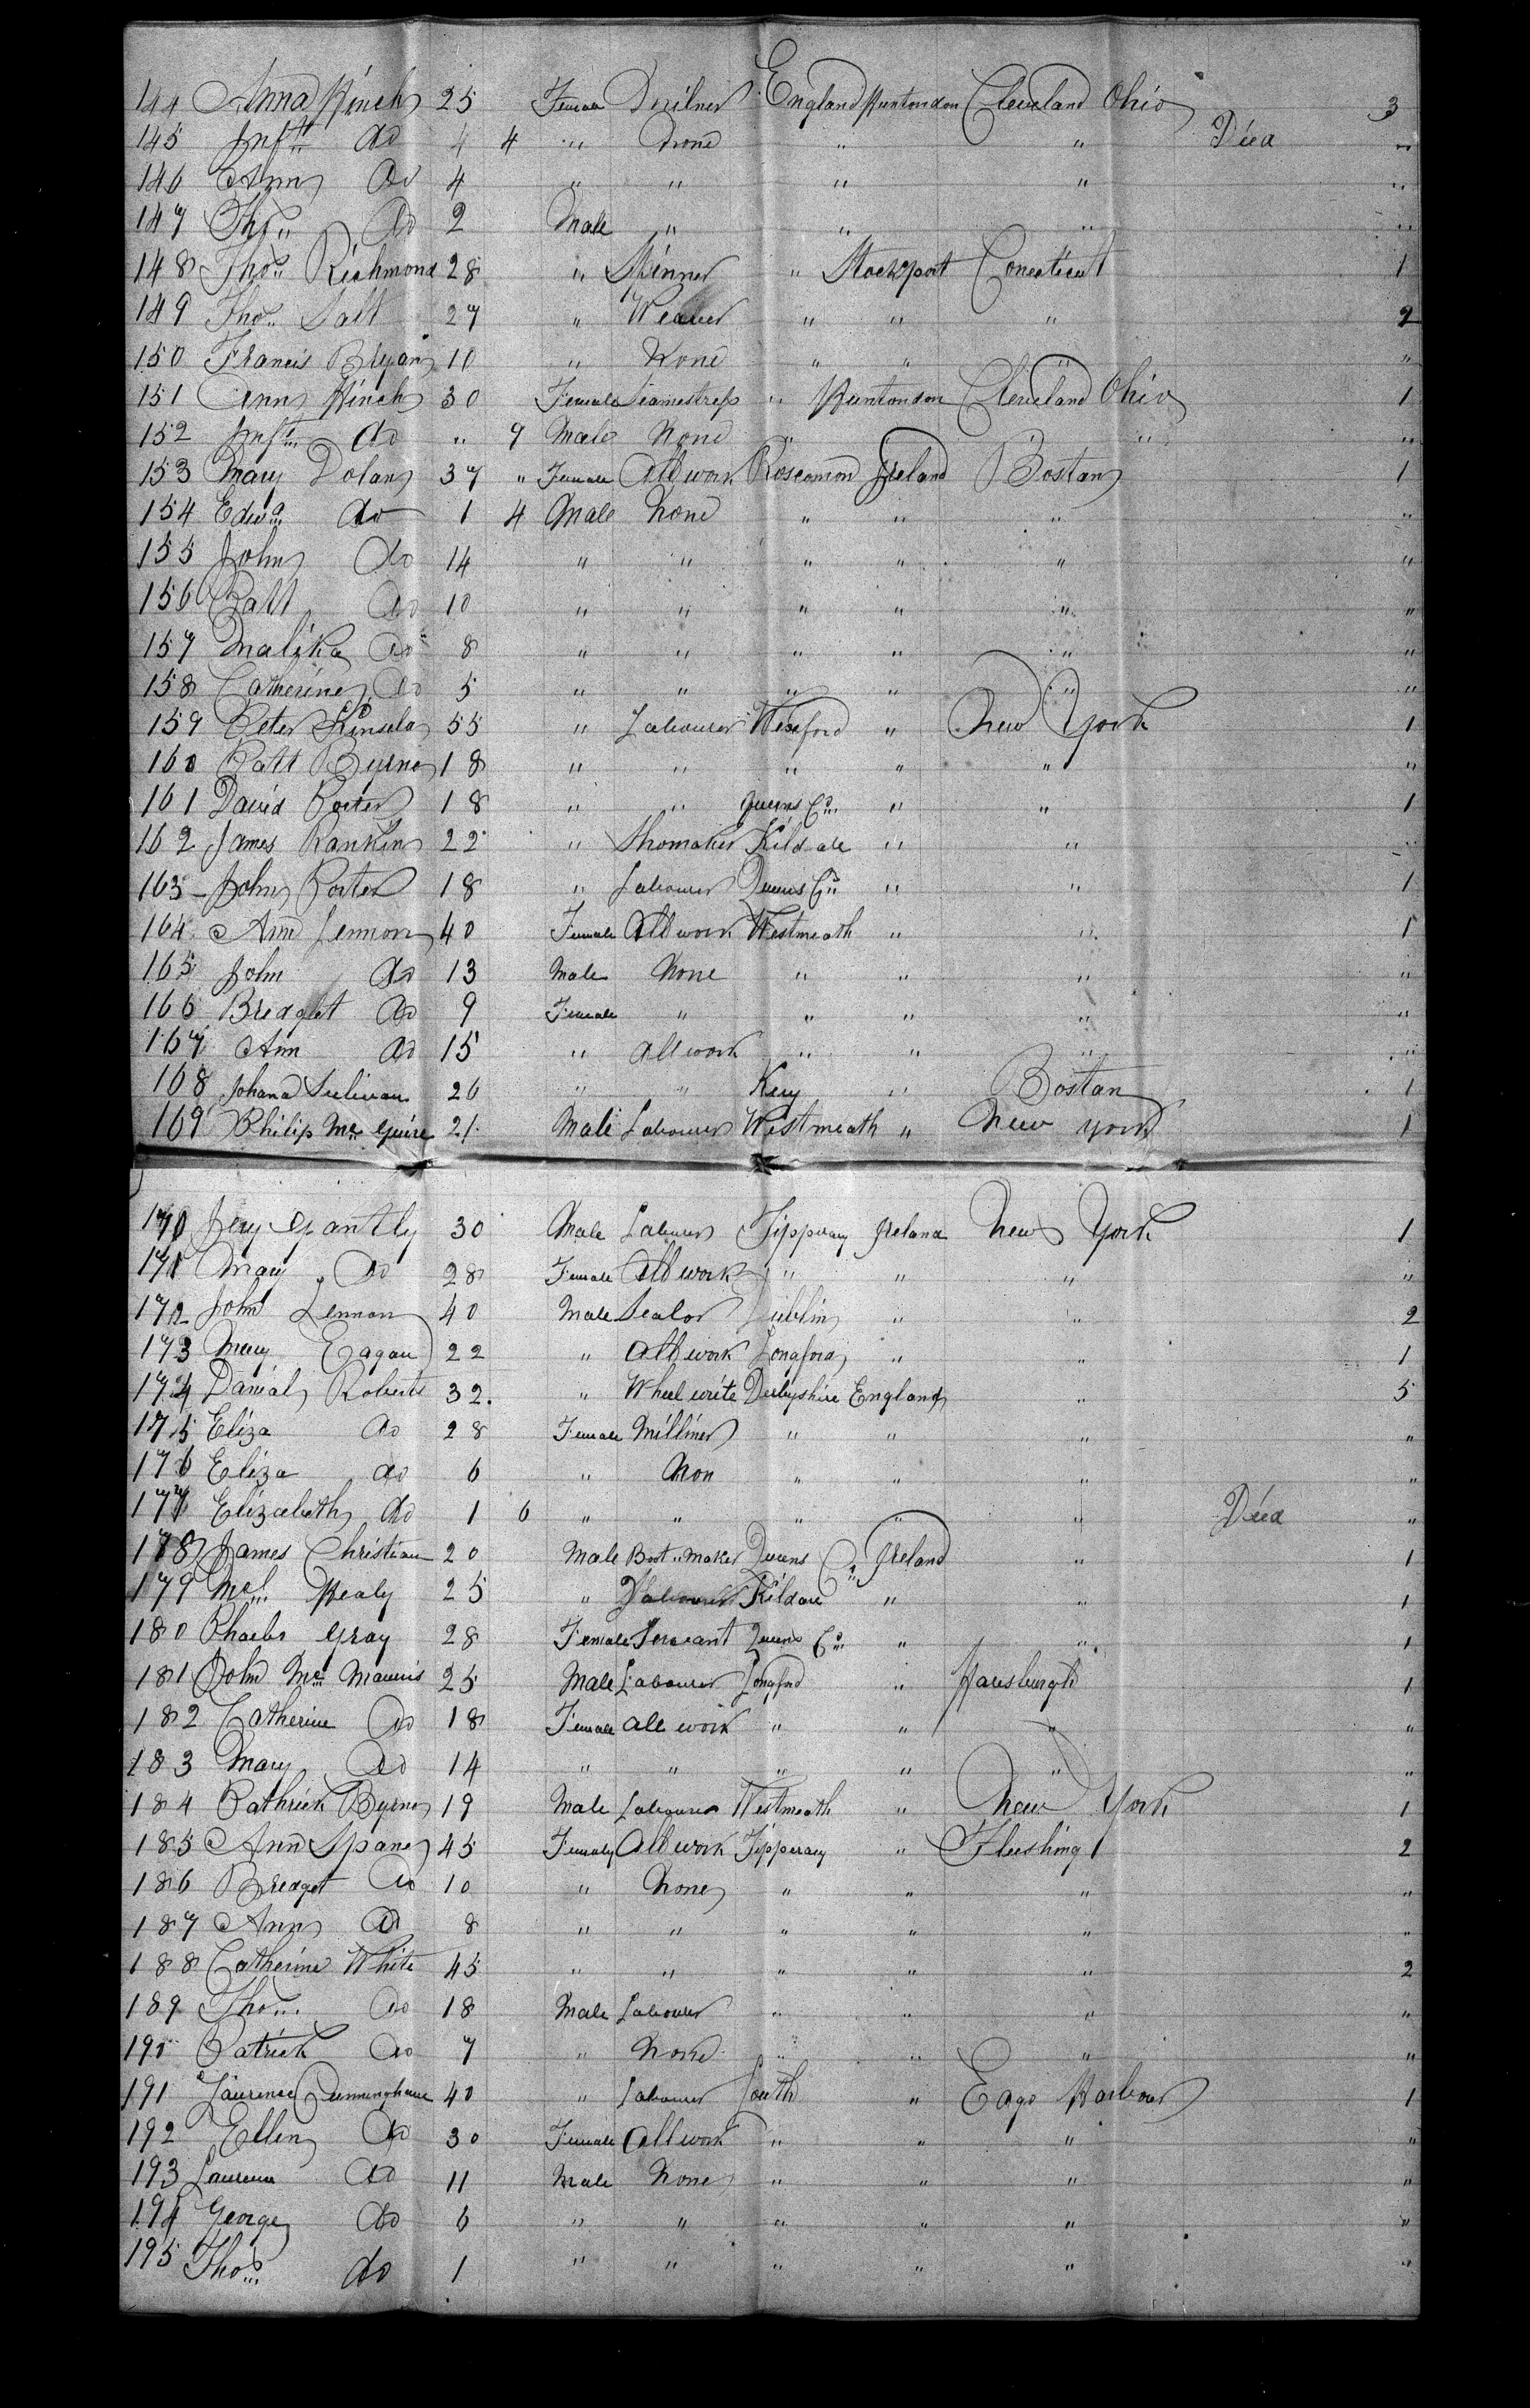 144 Anna Hinch 25 Female England Huntondon Cleveland Ohio 3
145 Inft do 4 4 " None " " Died "
146 Ann do 4 " " " " "
147 Tho. do 2 Male " " " "
148 Thos. Richmond 28 " Skinner " Stockport Conecticut 1
149 Tho. Salt 27 " Weaver " " " 2
150 Francis Bryan 10 " None " " " "
151 Ann Hinch 30 Female Seamestress " Huntondon Cleveland Ohio 1
152 Inft. do " 9 Male None " " "
153 Mary Dolan 37 " Female All work Roscomon Ireland Bostan 1
154 Edwd. do 1 4 Male None " " " "
155 John do 14 " " " " " "
156 Patt do 10 " " " " " "
157 do 8 " " " " " "
158 Catherine do 5 " " " " " "
159 Peter Kinsela 55 " Labourer Wexford " New York 1
160 Patt Byrne 18 " " " " " "
161 David Porter 18 " " Queens Co. " " 1
162 James Rankin 22 " Shomaker Kildale " " "
163 John Porter 18 " Labourer Queens Co. " " 1
164 Ann Lennon 40 Female All work Westmeath " " 1
165 John do 13 Male None " " " "
166 Bredget do 9 Female " " " " "
167 Ann do 15 " All work " " " "
168 Johana Sulivan 26 " " Kery " Bostan 1
169 Philip Mc Guire 21 Male Labourer Westmeath " New York 1
170 Jery Gantly 30 Male Labourer Tipperary Ireland New York 1
171 Mary do 28 Female All work " " " "
172 John Lennon 40 Male Dublin " " 2
173 Mary Eagan 22 " All work Longford " " 1
174 Danial Roberts 32. " Wheel write Derbyshire England " 5
175 Eliza do 28 Female Milliner " " " "
176 Eliza do 6 " Non " " " "
177 Elizabeth do 1 6 " " " " " Died "
178 James Christian 20 Male Boot maker Queens Co. Ireland " 1
179 Mcl. Healy 25 " Labourer Kildare " " 1
180 Phaebe Gray 28 Female Servant Queens Co. " " 1
181 John Mc Mannis 25 Male Labourer Longford " Haresburgh 1
182 Catherine do 18 Female All work " " " "
183 Mary do 14 " " " " " "
184 Pathrick Byrne 19 Male Labourer Westmeath " New York 1
185 Ann Spane 45 Female All work Tipperary " Fleshing 2
186 Bredget do 10 " None " " " "
187 Ann do 8 " " " " " "
188 Catherine White 45 " " " " " 2
189 Tho. do 18 Male Labourer " " " "
190 Patrick do 7 " None " " " "
191 Laurence Cunninghame 40 " Labourer Louth " Eags Harbour 1
192 Ellen do 30 Female All work " " " "
193 Laurence do 11 Male None " " " "
194 George do 6 " " " " " "
195 Thos. do 1 " " " " " "